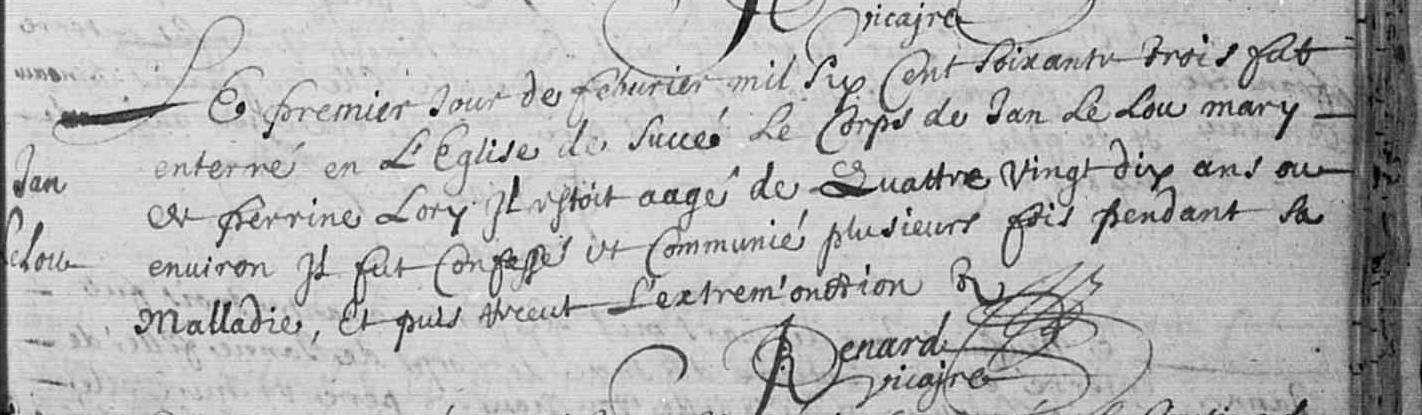 vicaire
Le premier Jour de feburier mil six Cent soixante trois fut
enterré en L'Eglise de Succé Le Corps de Jan Le Lou mary
de perrine Lory Il estoit aagé de Quattre vingt dix ans ou
enuiron Il fut Confessé et Communié plusieurs fois pendant sa
Malladie, et puis receut L'extrem'onction
Renard
vicaire
Jan
Lelou